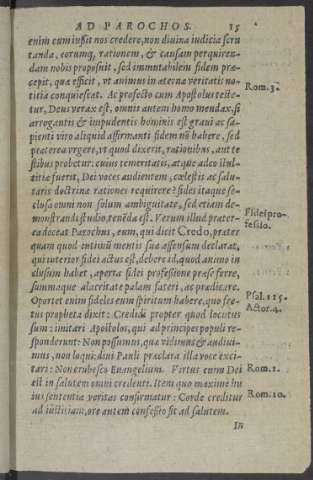 AD PAROCHOS. 15
enim cum iussit nos credere, non diuina iudicia scru
tanda, eorumq; rationem, & causam perquiren-
dam nobis proposuit, sed immutabilem fidem præ-
cepit, quæ efficit, vt animus in aeterna veritatis no-
titia conquiescat. Ac profecto cum Apostolus teste-
Rom. 3.
tur, Deus verax est, omnis autem homo mendax, si
arrogantis & impudentis hominis est graui ac sa-
pienti viro aliquid affirmanti fidem nō habere, sed
praeterea vrgere, vt quod dixerit, rationibus, aut te
stibus probetur: cuius temeritatis, atque adeo stul-
titiæ fuerit, Dei voces audientem, cælestis ac salu-
taris doctrinæ rationes requirere? fides itaque se-
clusa omni non solum ambiguitate, sed etiam de-
monstrandi studio, tenēda est. Verum illud præter-
Fidei pro-
fessio.
ea doceat Parochus, eum, qui dicit Credo, præter
quam quod intimū mentis suæ assensum declarat,
qui interior fidei actus est, debere id, quod animo in
clusum habet, aperta fidei professione præ se ferre,
summaque alacritate palam fateri, ac prædicare.
Oportet enim fideles eum spiritum habere, quo fre-
Psal. 115.
tus propheta dixit: Credidi propter quod locutus
Actor. 4.
sum: imitari Apostolos, qui ad principes populi re-
sponderunt: Non possumus, quæ vidimus & audiui-
mus, non loqui: diui Pauli præclara illa voce exci-
tari: Non erubesco Euangelium. Virtus enim Dei
Rom. 1.
est in salutem omni credenti. Item quo maxime hu
ius sententiæ veritas confirmatur: Corde creditur
Rom. 10.
ad iustitiam, ore autem confessio fit ad salutem.
IN